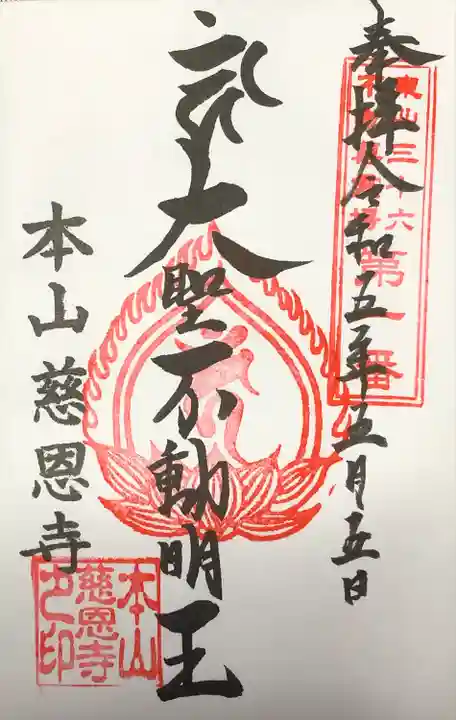 奉拝 令和五年五月五日
東北三十六
不動尊霊場
第一番
大聖不動明王
本山慈恩寺
本山
慈恩寺
之印